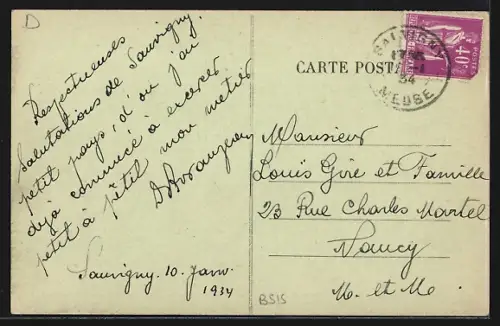 D
Respectueuses
Salutations de Sauvigny.
petit pays, d'ou j'ai
dejà commencé à exercer
petit à pétit mon metier
Sauvigny 10 Janv.
1934
BS15
CARTE POSTALE
SAUVIGNY
34
MEUSE
40c
POSTES
Monsieur
Louis Gire et Famille
23 Rue Charles Martel
Nancy
M. et M.